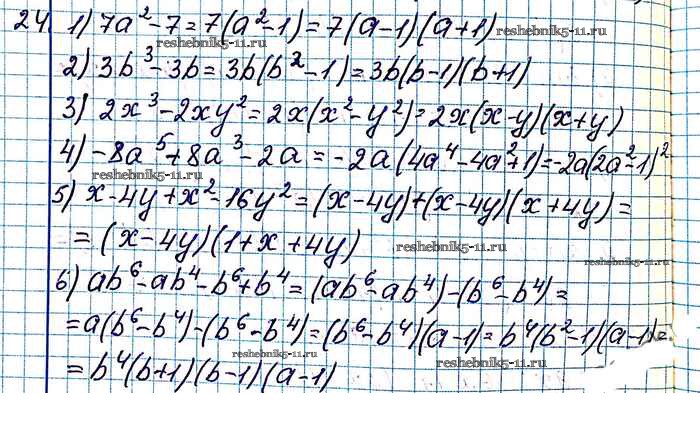 24. 1) 7a² - 7 = 7(a² - 1) = 7(a - 1)(a + 1)
reshebnik5-11.ru
2) 3b³ - 3b = 3b(b² - 1) = 3b(b - 1)(b + 1)
3) 2x³ - 2xy² = 2x(x² - y²) = 2x(x - y)(x + y)
4) -8a⁵ + 8a³ - 2a = -2a(4a⁴ - 4a² + 1) = -2a(2a² - 1)²
reshebnik5-11.ru
5) x - 4y + x² - 16y² = (x - 4y) + (x - 4y)(x + 4y) =
= (x - 4y)(1 + x + 4y) reshebnik5-11.ru
reshebnik5-11.ru
6) ab⁶ - ab⁴ - b⁶ + b⁴ = (ab⁶ - ab⁴) - (b⁶ - b⁴) =
= a(b⁶ - b⁴) - (b⁶ - b⁴) = (b⁶ - b⁴)(a - 1) = b⁴(b² - 1)(a - 1) =
reshebnik5-11.ru reshebnik5-11.ru
= b⁴(b + 1)(b - 1)(a - 1)